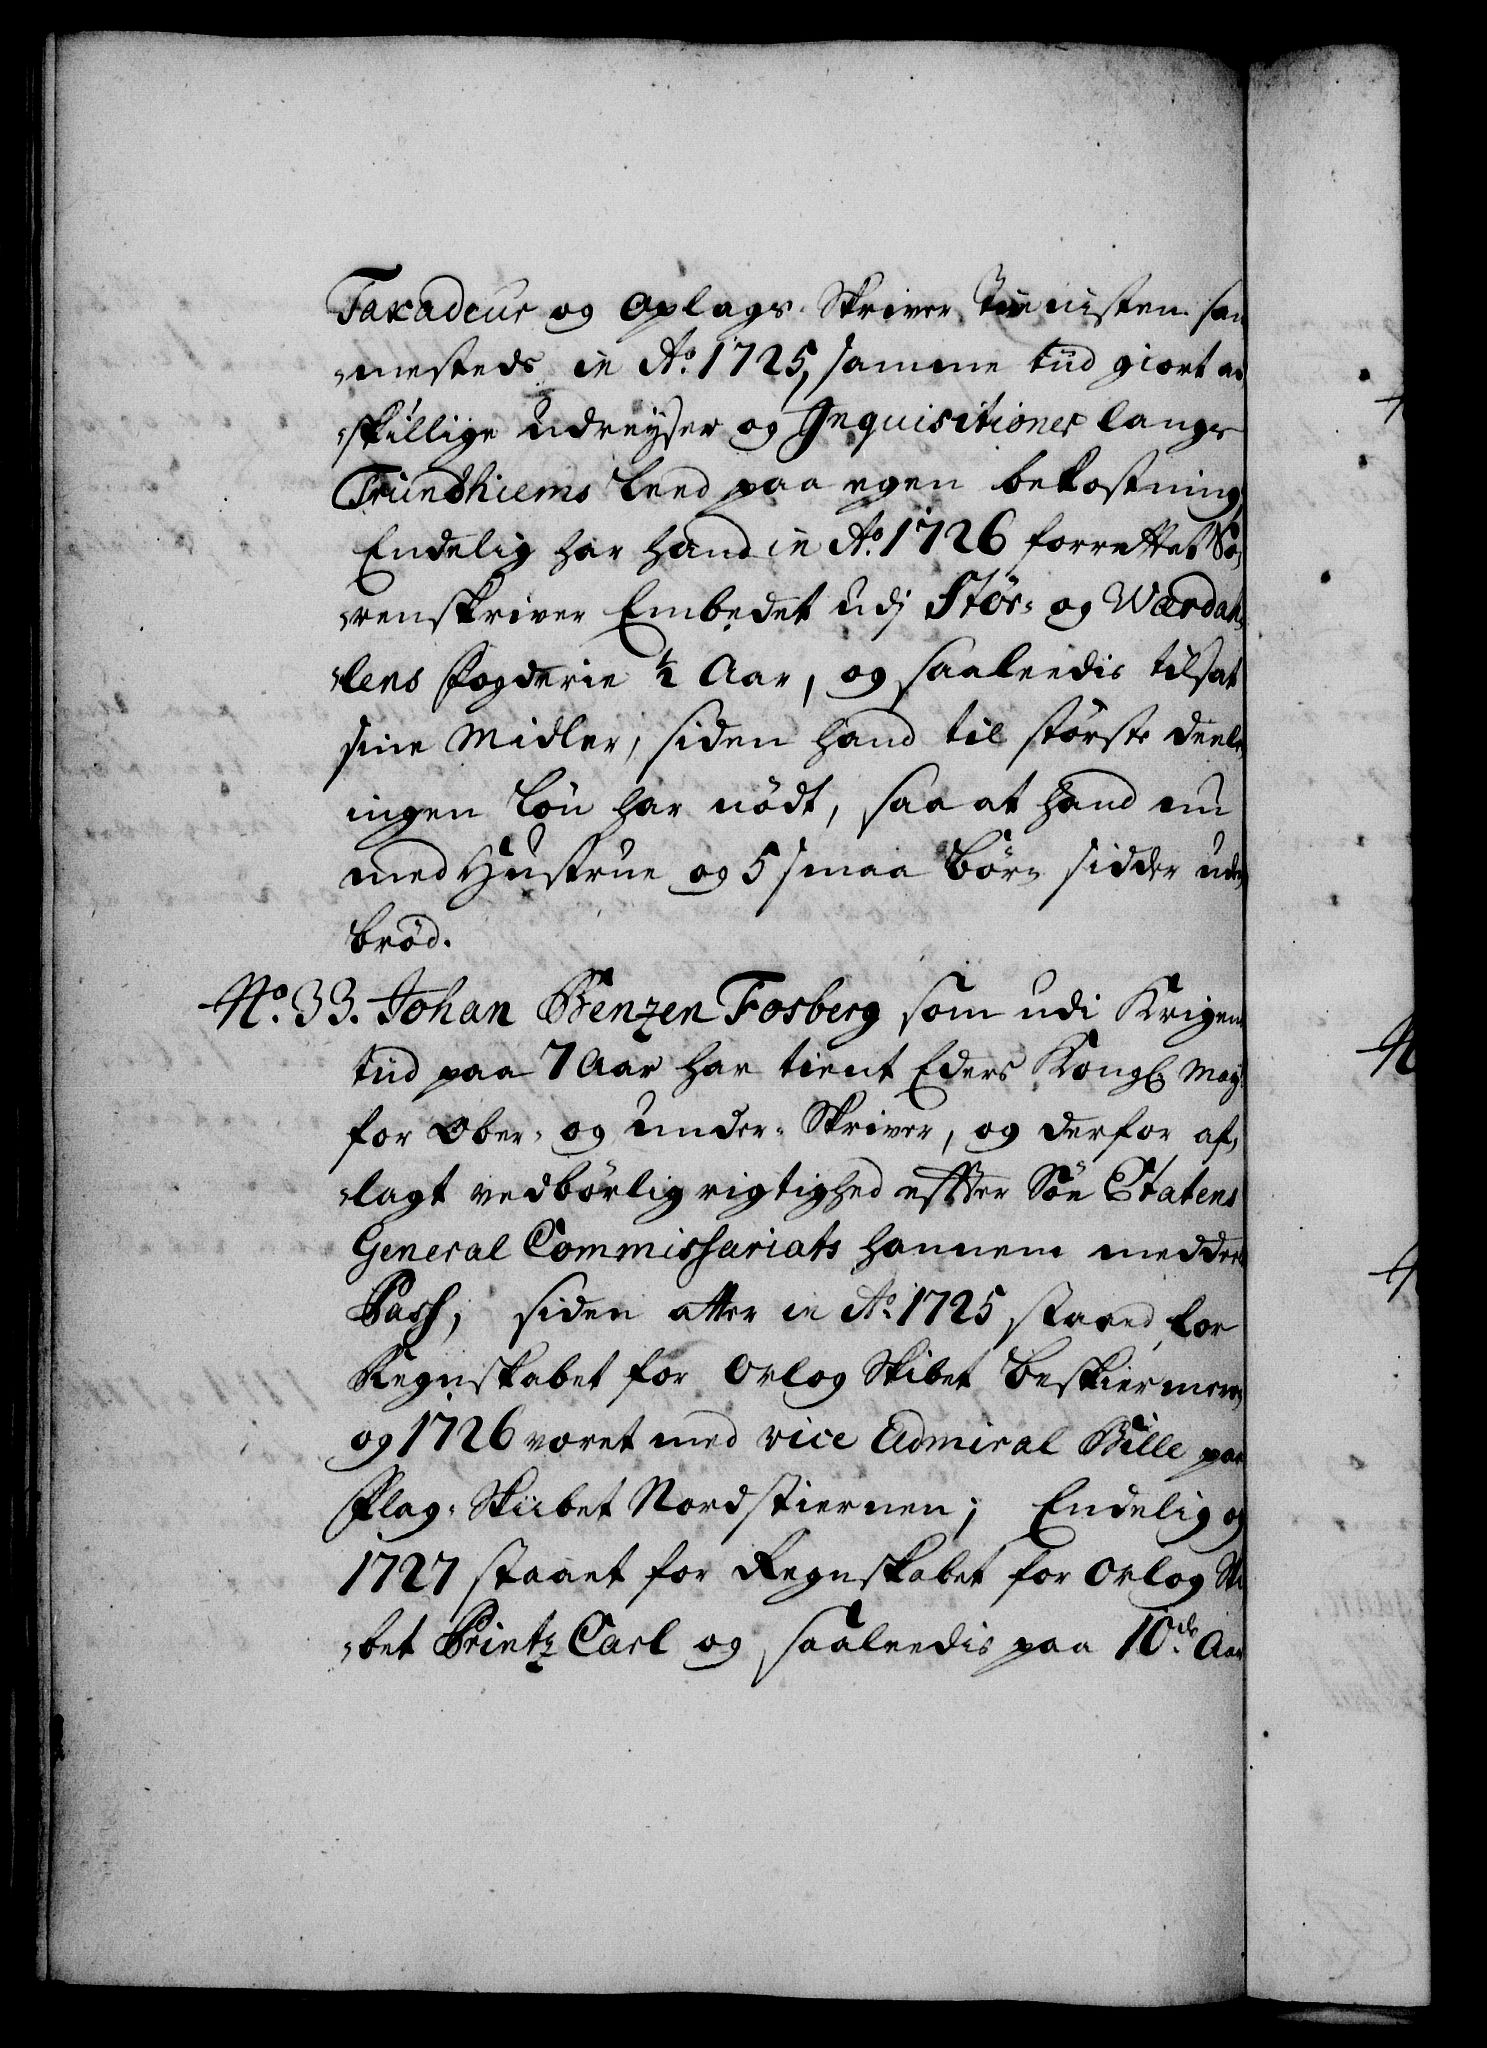 Taxadeur og Oplags Skriver Tienisten sam
-mesteds in Ao. 1725, samme tiid giort ad
-skillige Udreyser og Inquisitioner langs
Trundhiems Leed paa egen bekostning,
Endelig har hand in Ao. 1726 forrettet So-
-renskriver Embedet udj Stör- og Wærdah-
-lens Fogderie ½ Aar, og saaleedis tilsat
sine Midler, siden hand til störste deele
ingen Lön har nödt, saa at hand nu
med Hustrue og 5 smaa Börn sidder uden
bröd.
No. 33. Johan Benzen Fosberg som udi Krigens
tiid paa 7 Aar har tient Eders Kongl. May:
for Ober- og Under-Skriver, og derfor af-
-lagt vedbörlig rigtighed efter Söe Etatens
General Commissariats hannem meddeel
Pass, siden atter in Ao. 1725 staaed for
Regnskabet for Orlog Skibet Beskiermeren
og 1726 været med vice Admiral Bille paa
Flag-Skibet Nordstiernen; Endelig og
1727 staaet for Regnskabet for Orlog Ski
-bet Printz Carl og saaleedis paa 10de Aar